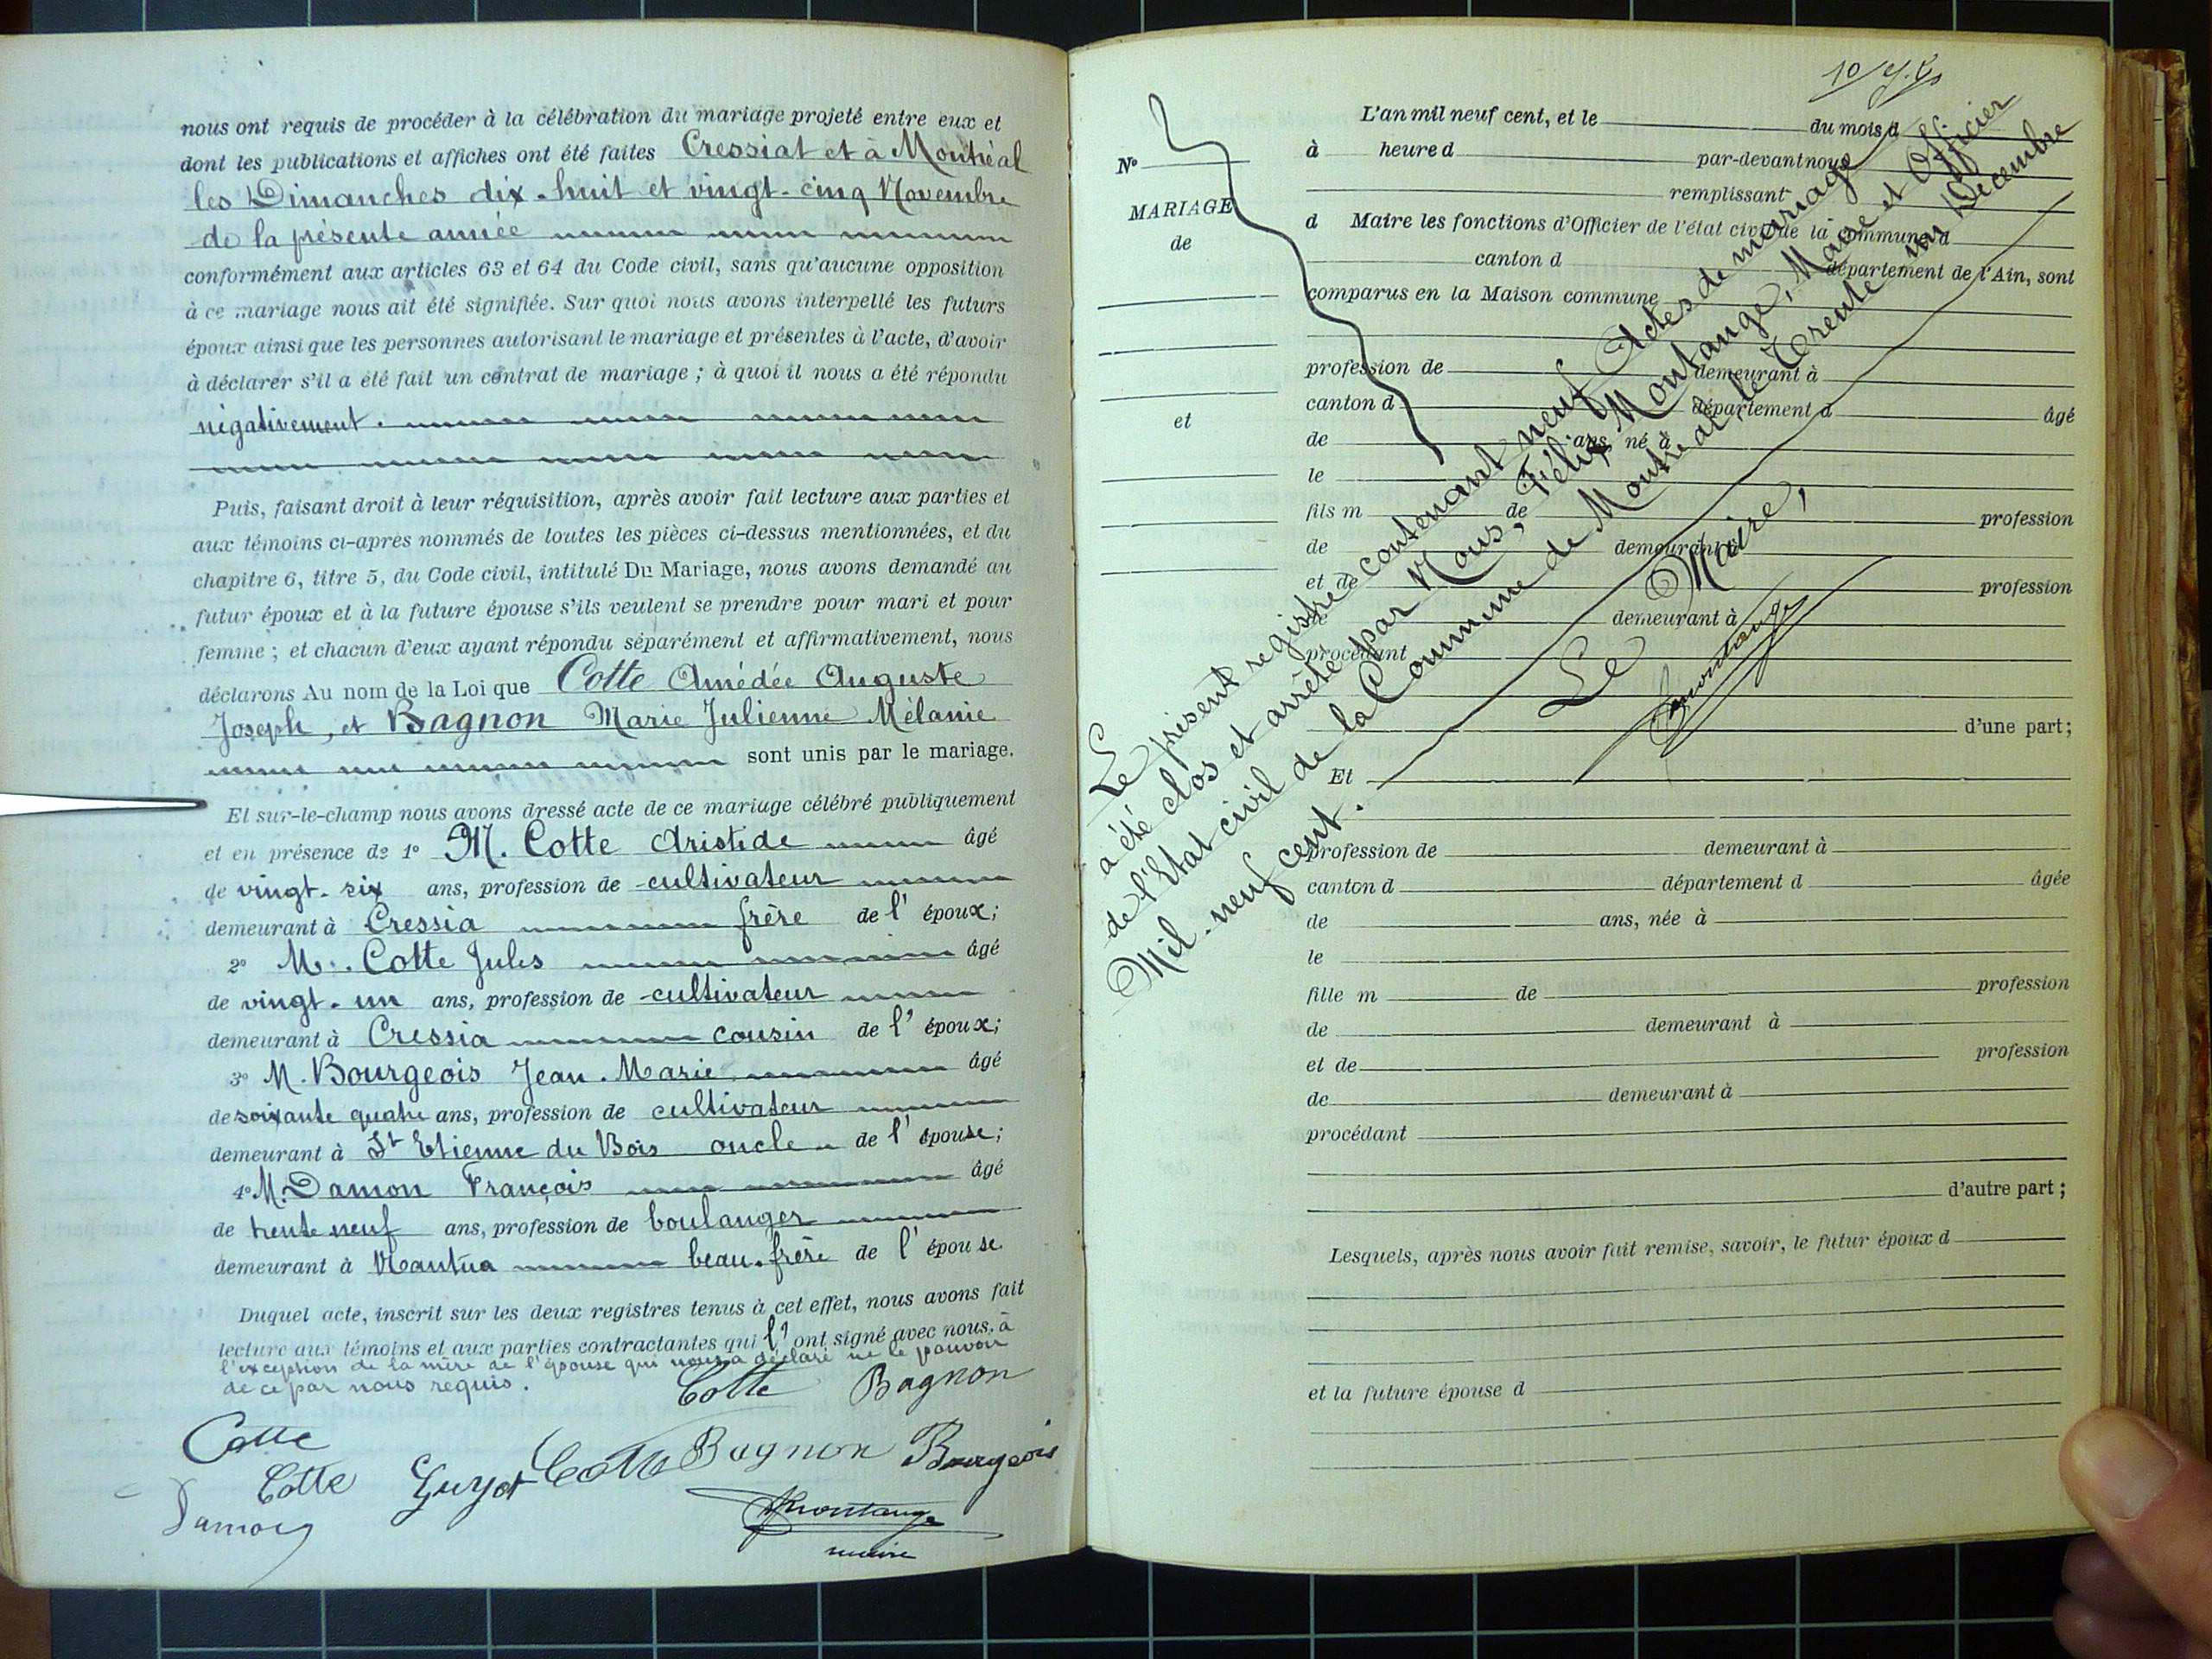 nous ont requis de procéder à la célébration du mariage projeté entre eux et
dont les publications et affiches ont été faites Cressiat et à Montréal
les Dimanches dix-huit et vingt-cinq Novembre
de la présente année
conformément aux articles 63 et 64 du Code civil, sans qu'aucune opposition
à ce mariage nous ait été signifiée. Sur quoi nous avons interpellé les futurs
époux ainsi que les personnes autorisant le mariage et présentes à l'acte, d'avoir
à déclarer s'il a été fait un contrat de mariage ; à quoi il nous a été répondu
négativement.
Puis, faisant droit à leur réquisition, après avoir fait lecture aux parties et
aux témoins ci-après nommés de toutes les pièces ci-dessus mentionnées, et du
chapitre 6, titre 5, du Code civil, intitulé Du Mariage, nous avons demandé au
futur époux et à la future épouse s'ils veulent se prendre pour mari et pour
femme ; et chacun d'eux ayant répondu séparément et affirmativement, nous
déclarons Au nom de la Loi que Cotte Amédée Auguste
Joseph, et Bagnon Marie Julienne Mélanie
sont unis par le mariage.
Et sur-le-champ nous avons dressé acte de ce mariage célébré publiquement
et en présence de 1° M. Cotte Aristide âgé
de vingt-six ans, profession de cultivateur
demeurant à Cressia frère de l'époux;
2° M. Cotte Jules âgé
de vingt-un ans, profession de cultivateur
demeurant à Cressia cousin de l'époux;
3° M. Bourgeois Jean-Marie âgé
de soixante quatre ans, profession de cultivateur
demeurant à St Etienne du Bois oncle de l'épouse;
4° M. Damon François âgé
de trente neuf ans, profession de boulanger
demeurant à Nantua beau-frère de l'épouse.
Duquel acte, inscrit sur les deux registres tenus à cet effet, nous avons fait
lecture aux témoins et aux parties contractantes qui l'ont signé avec nous, à
l'exception de la mère de l'épouse qui nous a déclaré ne le pouvoir
de ce par nous requis.
Cotte Bagnon
Cotte
Cotte Guyot Cotte Bagnon Bourgeois
Damon
Montange
maire
L'an mil neuf cent, et le du mois d
N° à heure d par-devant nous
remplissant
MARIAGE
d Maire les fonctions d'Officier de l'état civil de la commune d
de
canton d département de l'Ain, sont
comparus en la Maison commune
profession de demeurant à
canton d département d âgé
et
de ans, né à
le
fils m de profession
de demeurant à
et de profession
de demeurant à
procédant
d'une part;
Et
profession de demeurant à
canton d département d âgée
de ans, née à
le
fille m de profession
de demeurant à
et de profession
de demeurant à
procédant
d'autre part ;
Lesquels, après nous avoir fait remise, savoir, le futur époux d
et la future épouse d
Le présent registre contenant neuf Actes de mariage
a été clos et arrêté par Nous, Félix Montange, Maire et Officier
de l'Etat civil de la Commune de Montréal, le Trente un Décembre
Mil-neuf cent.
Le Maire,
Montange